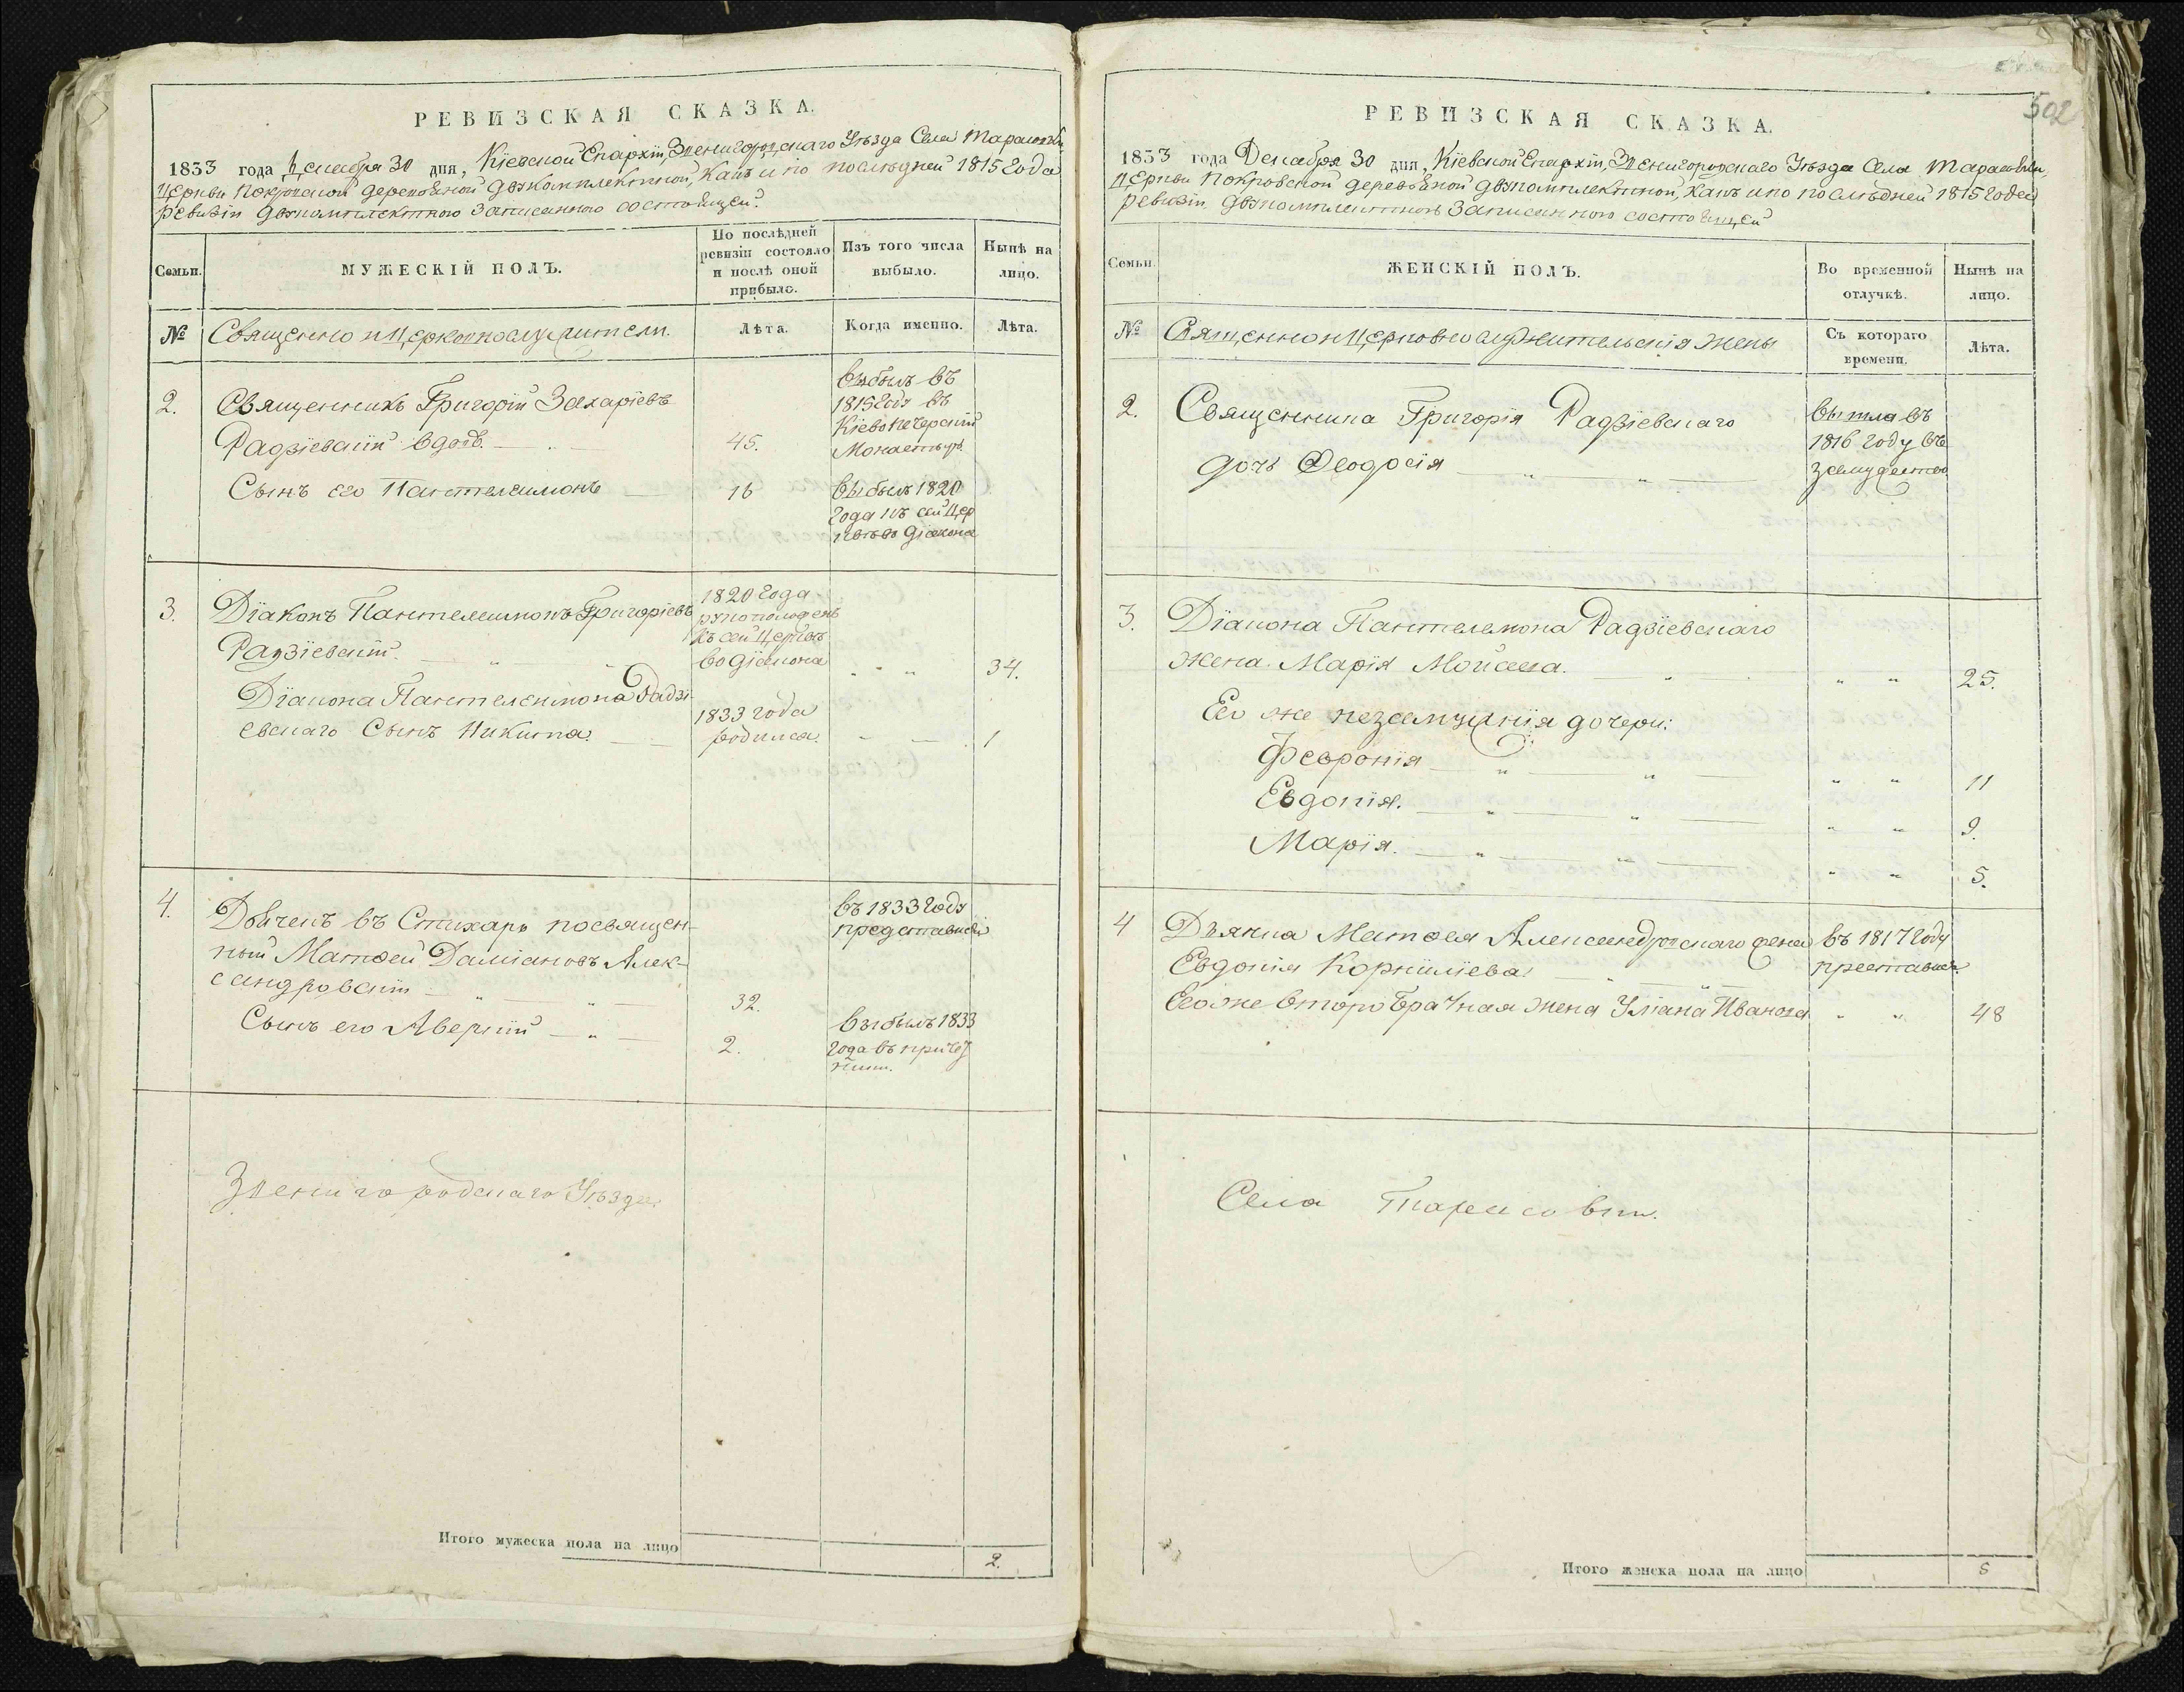 РЕВИЗСКАЯ СКАЗКА.
1833 года Декабря 30 дня, Кіевской Епархіи, Звенигородскаго Уѣзда Села Тарасовки
Церкви Покровской деревяной двукомплектной, какъ и по послѣдней 1815 года
ревизіи двукомплектною записанною состоящей.
Семьи.
МУЖЕСКІЙ ПОЛЪ.
По послѣдней ревизіи состояло и послѣ оной прибыло.
Изъ того числа выбыло.
Нынѣ на лицо.
№
Священно и Церковнослужители.
Лѣта.
Когда именно.
Лѣта.
2.
Священникъ Григорій Захаріевъ
Радзіевскій вдовъ.
45.
выбылъ въ
1815 году въ
Кіевопечерскій
Монастырь
Сынъ его Пантелеимонъ
16
Выбылъ 1820
года къ сей Цер
квѣ во діакона
3.
Діаконъ Пантелеимонъ Григоріевъ
Радзіевскій.
1820 года
рукоположенъ
къ сей Церквѣ
во діакона
34.
Діакона Пантелеимона Радзі-
евскаго Сынъ Никита.
1833 года
родился.
1
4.
Дьячекъ въ Стихарь посвящен-
ный Матфей Даміановъ Алек-
сандровскій
32.
въ 1833 году
представися
Сынъ его Аверкій
2.
Выбылъ 1833
года въ причет
ники.
Звенигородскаго Уѣзда.
Итого мужеска пола на лицо
2.
502
РЕВИЗСКАЯ СКАЗКА.
1833 года Декабря 30 дня, Кіевской Епархіи, Звенигородскаго Уѣзда Села Тарасовки,
Церкви Покровской деревяной двукомплектной, какъ и по послѣдней 1815 года
ревизіи двукомплектною записанною состоящей
Семьи.
ЖЕНСКІЙ ПОЛЪ.
Во временной отлучкѣ.
Нынѣ на лицо.
№
Священно и Церковнослужительскія жены
Съ котораго времени.
Лѣта.
2.
Священника Григорія Радзіевскаго
дочь Феодосія
вышла въ
1816 году въ
замужество
3.
Діакона Пантелемона Радзіевскаго
жена Марія Моисеева.
25.
Его же незамужнія дочери:
Февронія
11
Евдокія.
9.
Марія.
5.
4
Дьячка Матфея Александровскаго жена
Евдокія Корниліева
въ 1817 году
преставися
Его же второбрачная жена Уліана Иванова
48
Села Тарасовки.
Итого женска пола на лицо
5